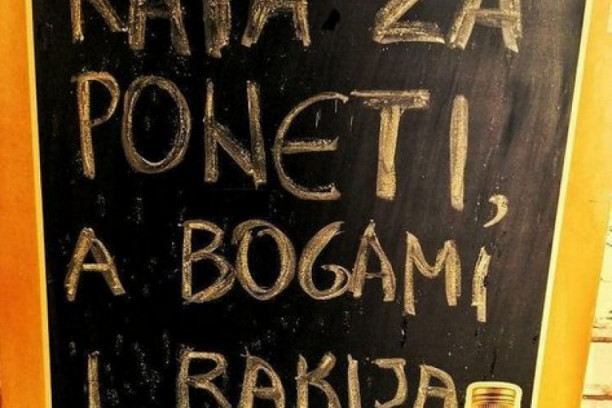 KAFA ZA
PONETI,
A BOGAMI
I RAKIJA